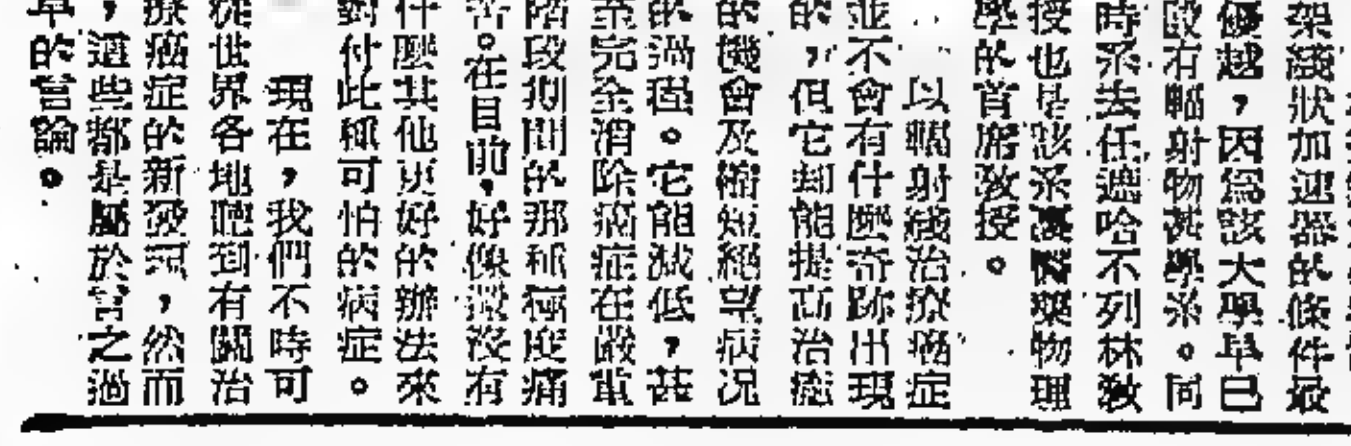 架綫狀加速器的條件最
優越，因爲該大學早已
設有輻射物甚學系。同
時系去任遮哈不列林敎
授也是該系醫藥物理
學的首席敎授。
以輻射綫治療癌症
並不會有什麼奇跡出現
的，但它却能提高治癒
的機會及縮短絕望病况
的過程。它能减低，甚
至完全消除病症在嚴重
階段期間的那種極度痛
苦。在目前，好像還沒有
什麼其他更好的辦法來
對付此種可怕的病症。
現在，我們不時可
從世界各地聽到有關治
療癌症的新發現，然而
，這些都是屬於言之過
早的言論。